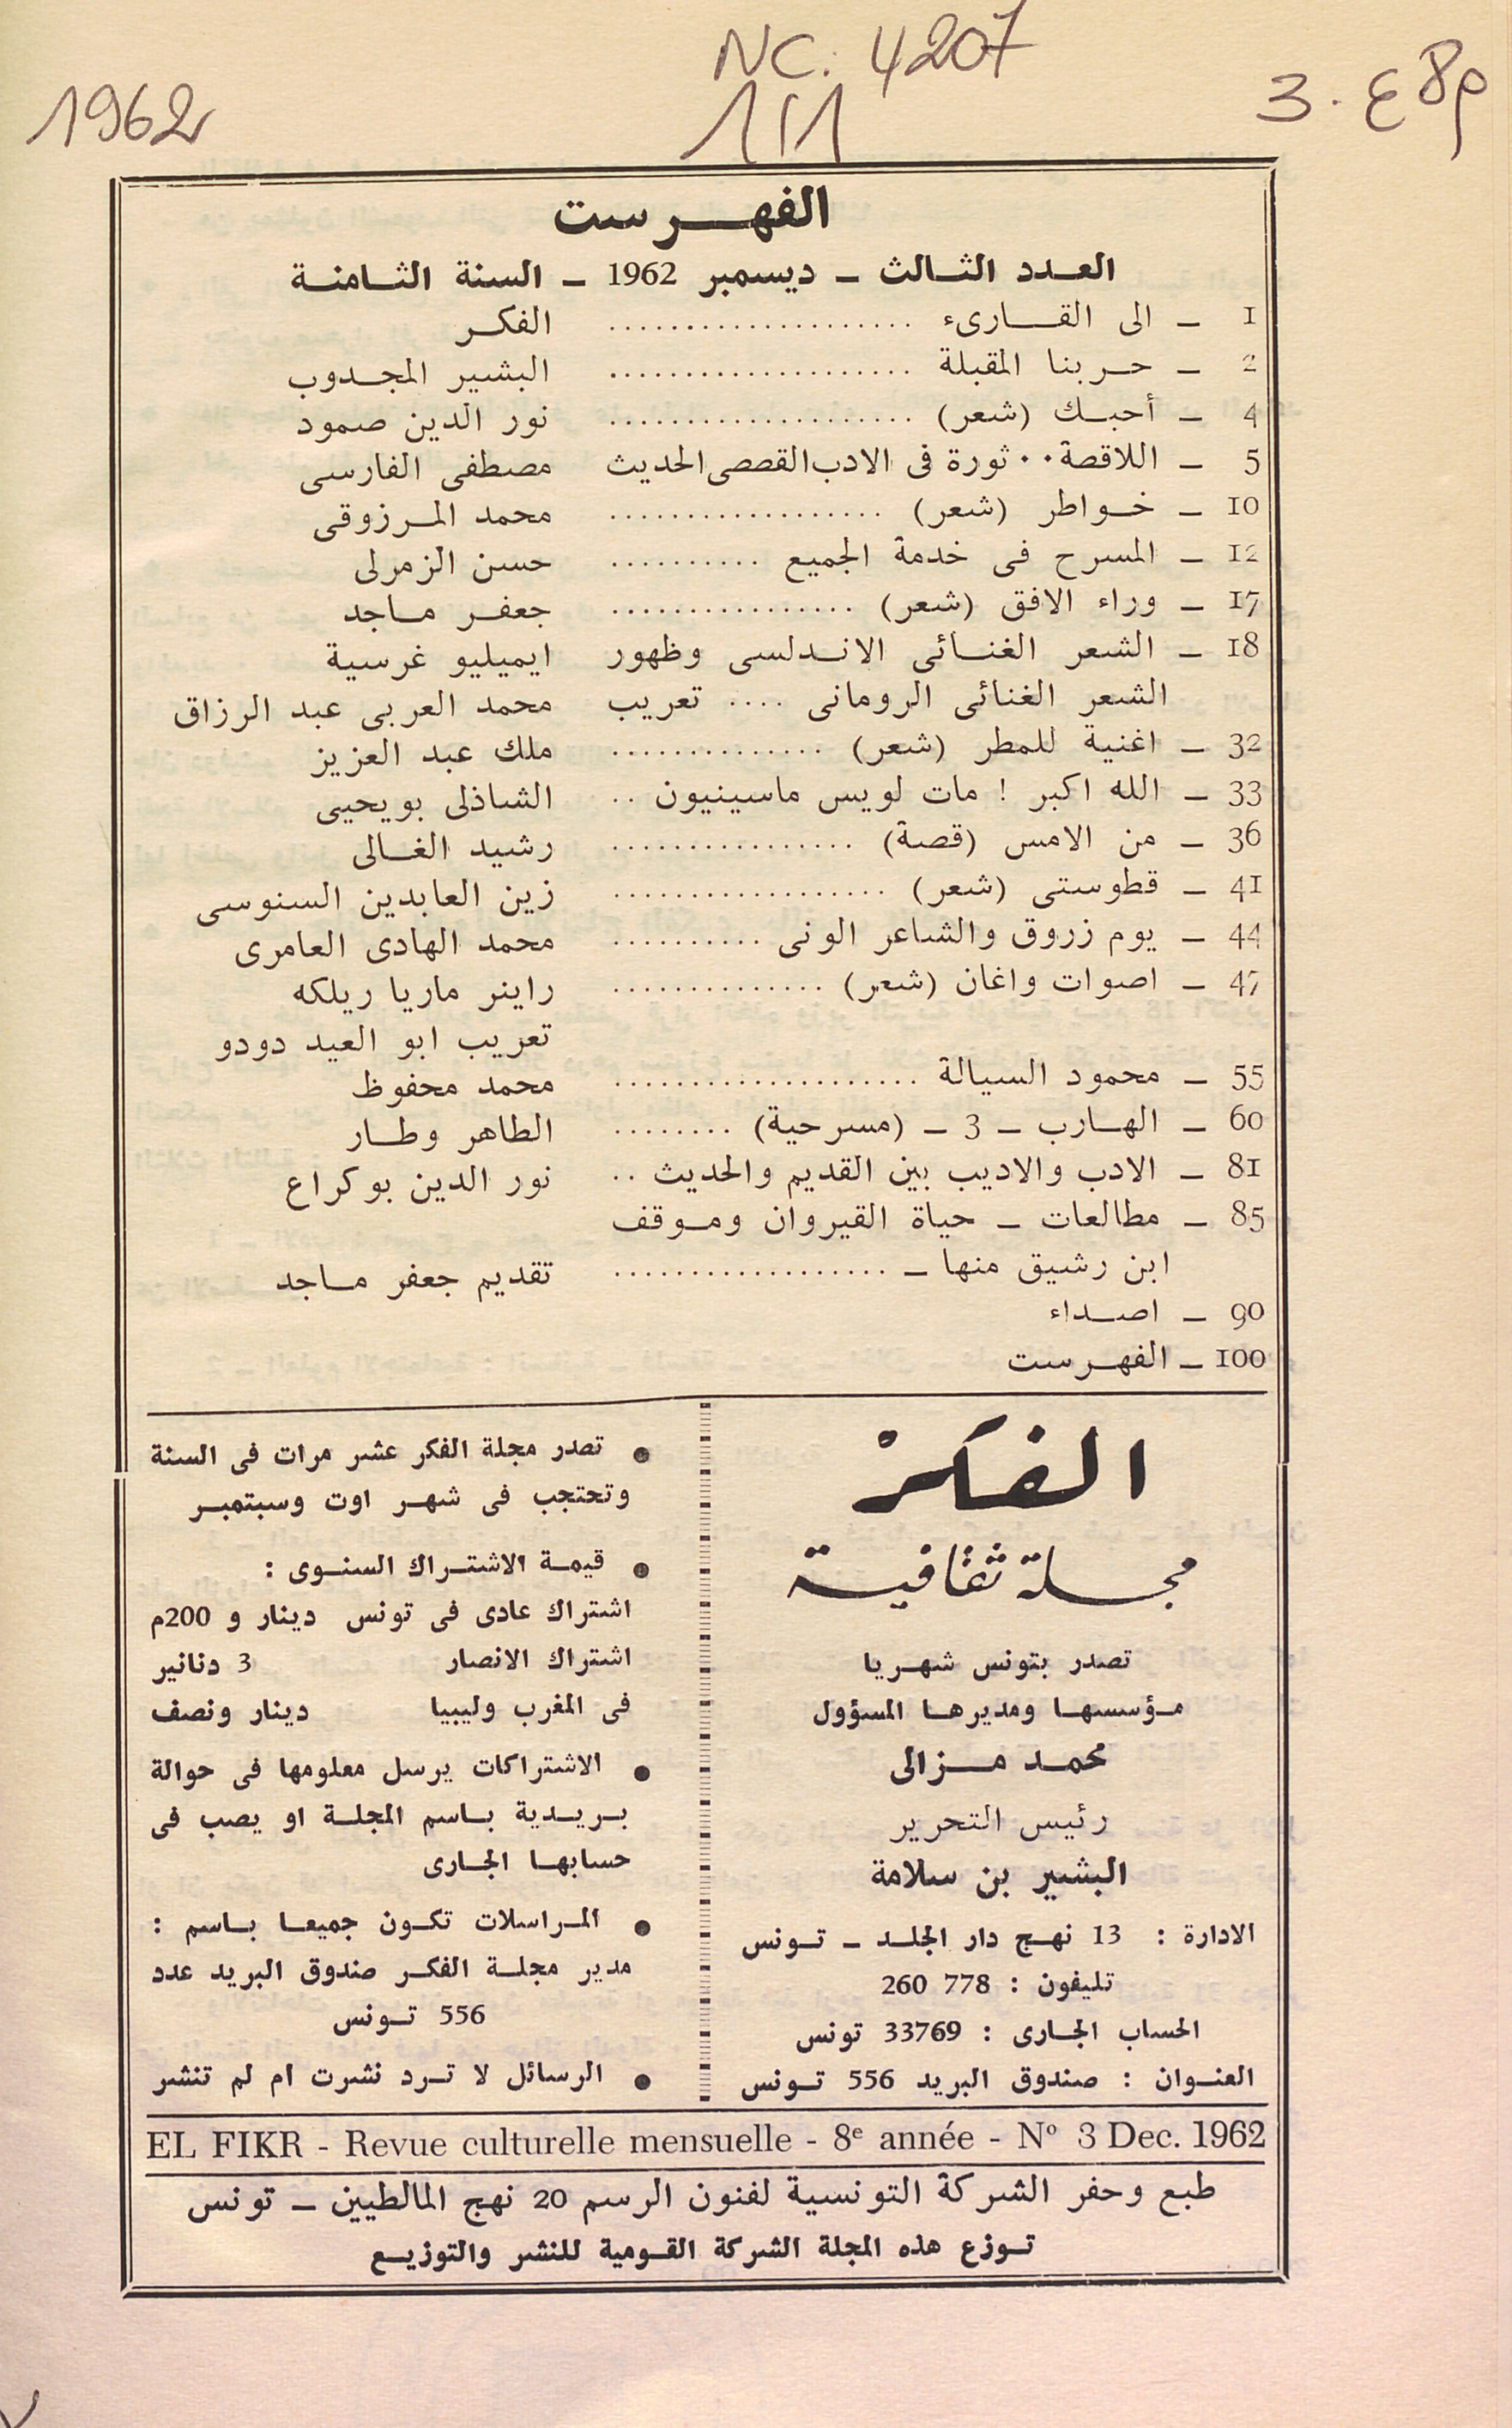 NC: 4207
1962
3.ع8م
الفهرست
العدد الثالث ـ ديسمبر 1962 ـ السنة الثامنة
1 ـ الى القارىء .................... الفكر
2 ـ حربنا المقبلة .................... البشير المجدوب
4 ـ أحبك (شعر) .................... نور الدين صمود
5 ـ اللاقصة .. ثورة فى الادب القصصى الحديث مصطفى الفارسى
10 ـ خواطر (شعر) .................. محمد المرزوقى
12 ـ المسرح فى خدمة الجميع .......... حسن الزمرلى
17 ـ وراء الافق (شعر) ................ جعفر ماجد
18 ـ الشعر الغنائى الاندلسى وظهور ايميليو غرسية
الشعر الغنائى الرومانى .... تعريب محمد العربى عبد الرزاق
32 ـ اغنية للمطر (شعر) .............. ملك عبد العزيز
33 ـ الله اكبر ! مات لويس ماسينيون .. الشاذلى بويحيى
36 ـ من الامس (قصة) ................ رشيد الغالى
41 ـ قطوستى (شعر) .................. زين العابدين السنوسى
44 ـ يوم زروق والشاعر الونى .......... محمد الهادى العامرى
47 ـ اصوات واغان (شعر) .............. راينر ماريا ريلكه
تعريب ابو العيد دودو
55 ـ محمود السيالة .................... محمد محفوظ
60 ـ الهارب ـ 3 ـ (مسرحية) ........ الطاهر وطار
81 ـ الادب والاديب بين القديم والحديث .. نور الدين بوكراع
85 ـ مطالعات ـ حياة القيروان وموقف
ابن رشيق منها ـ .................. تقديم جعفر ماجد
90 ـ اصداء
100 ـ الفهرست
الفكر
مجلة ثقافية
تصدر بتونس شهريا
مؤسسها ومديرها المسؤول
محمد مزالى
رئيس التحرير
البشير بن سلامة
الادارة : 13 نهج دار الجلد ـ تونس
تليفون : 778 260
الحساب الجارى : 33769 تونس
العنوان : صندوق البريد 556 تونس
● تصدر مجلة الفكر عشر مرات فى السنة
وتحتجب فى شهر اوت وسبتمبر
● قيمة الاشتراك السنوى :
اشتراك عادى فى تونس دينار و 200م
اشتراك الانصار 3 دنانير
فى المغرب وليبيا دينار ونصف
● الاشتراكات يرسل معلومها فى حوالة
بريدية باسم المجلة او يصب فى
حسابها الجارى
● المراسلات تكون جميعا باسم :
مدير مجلة الفكر صندوق البريد عدد
556 تونس
● الرسائل لا ترد نشرت ام لم تنشر
EL FIKR - Revue culturelle mensuelle - 8e année - No 3 Dec. 1962
طبع وحفر الشركة التونسية لفنون الرسم 20 نهج المالطيين ـ تونس
توزع هذه المجلة الشركة القومية للنشر والتوزيع